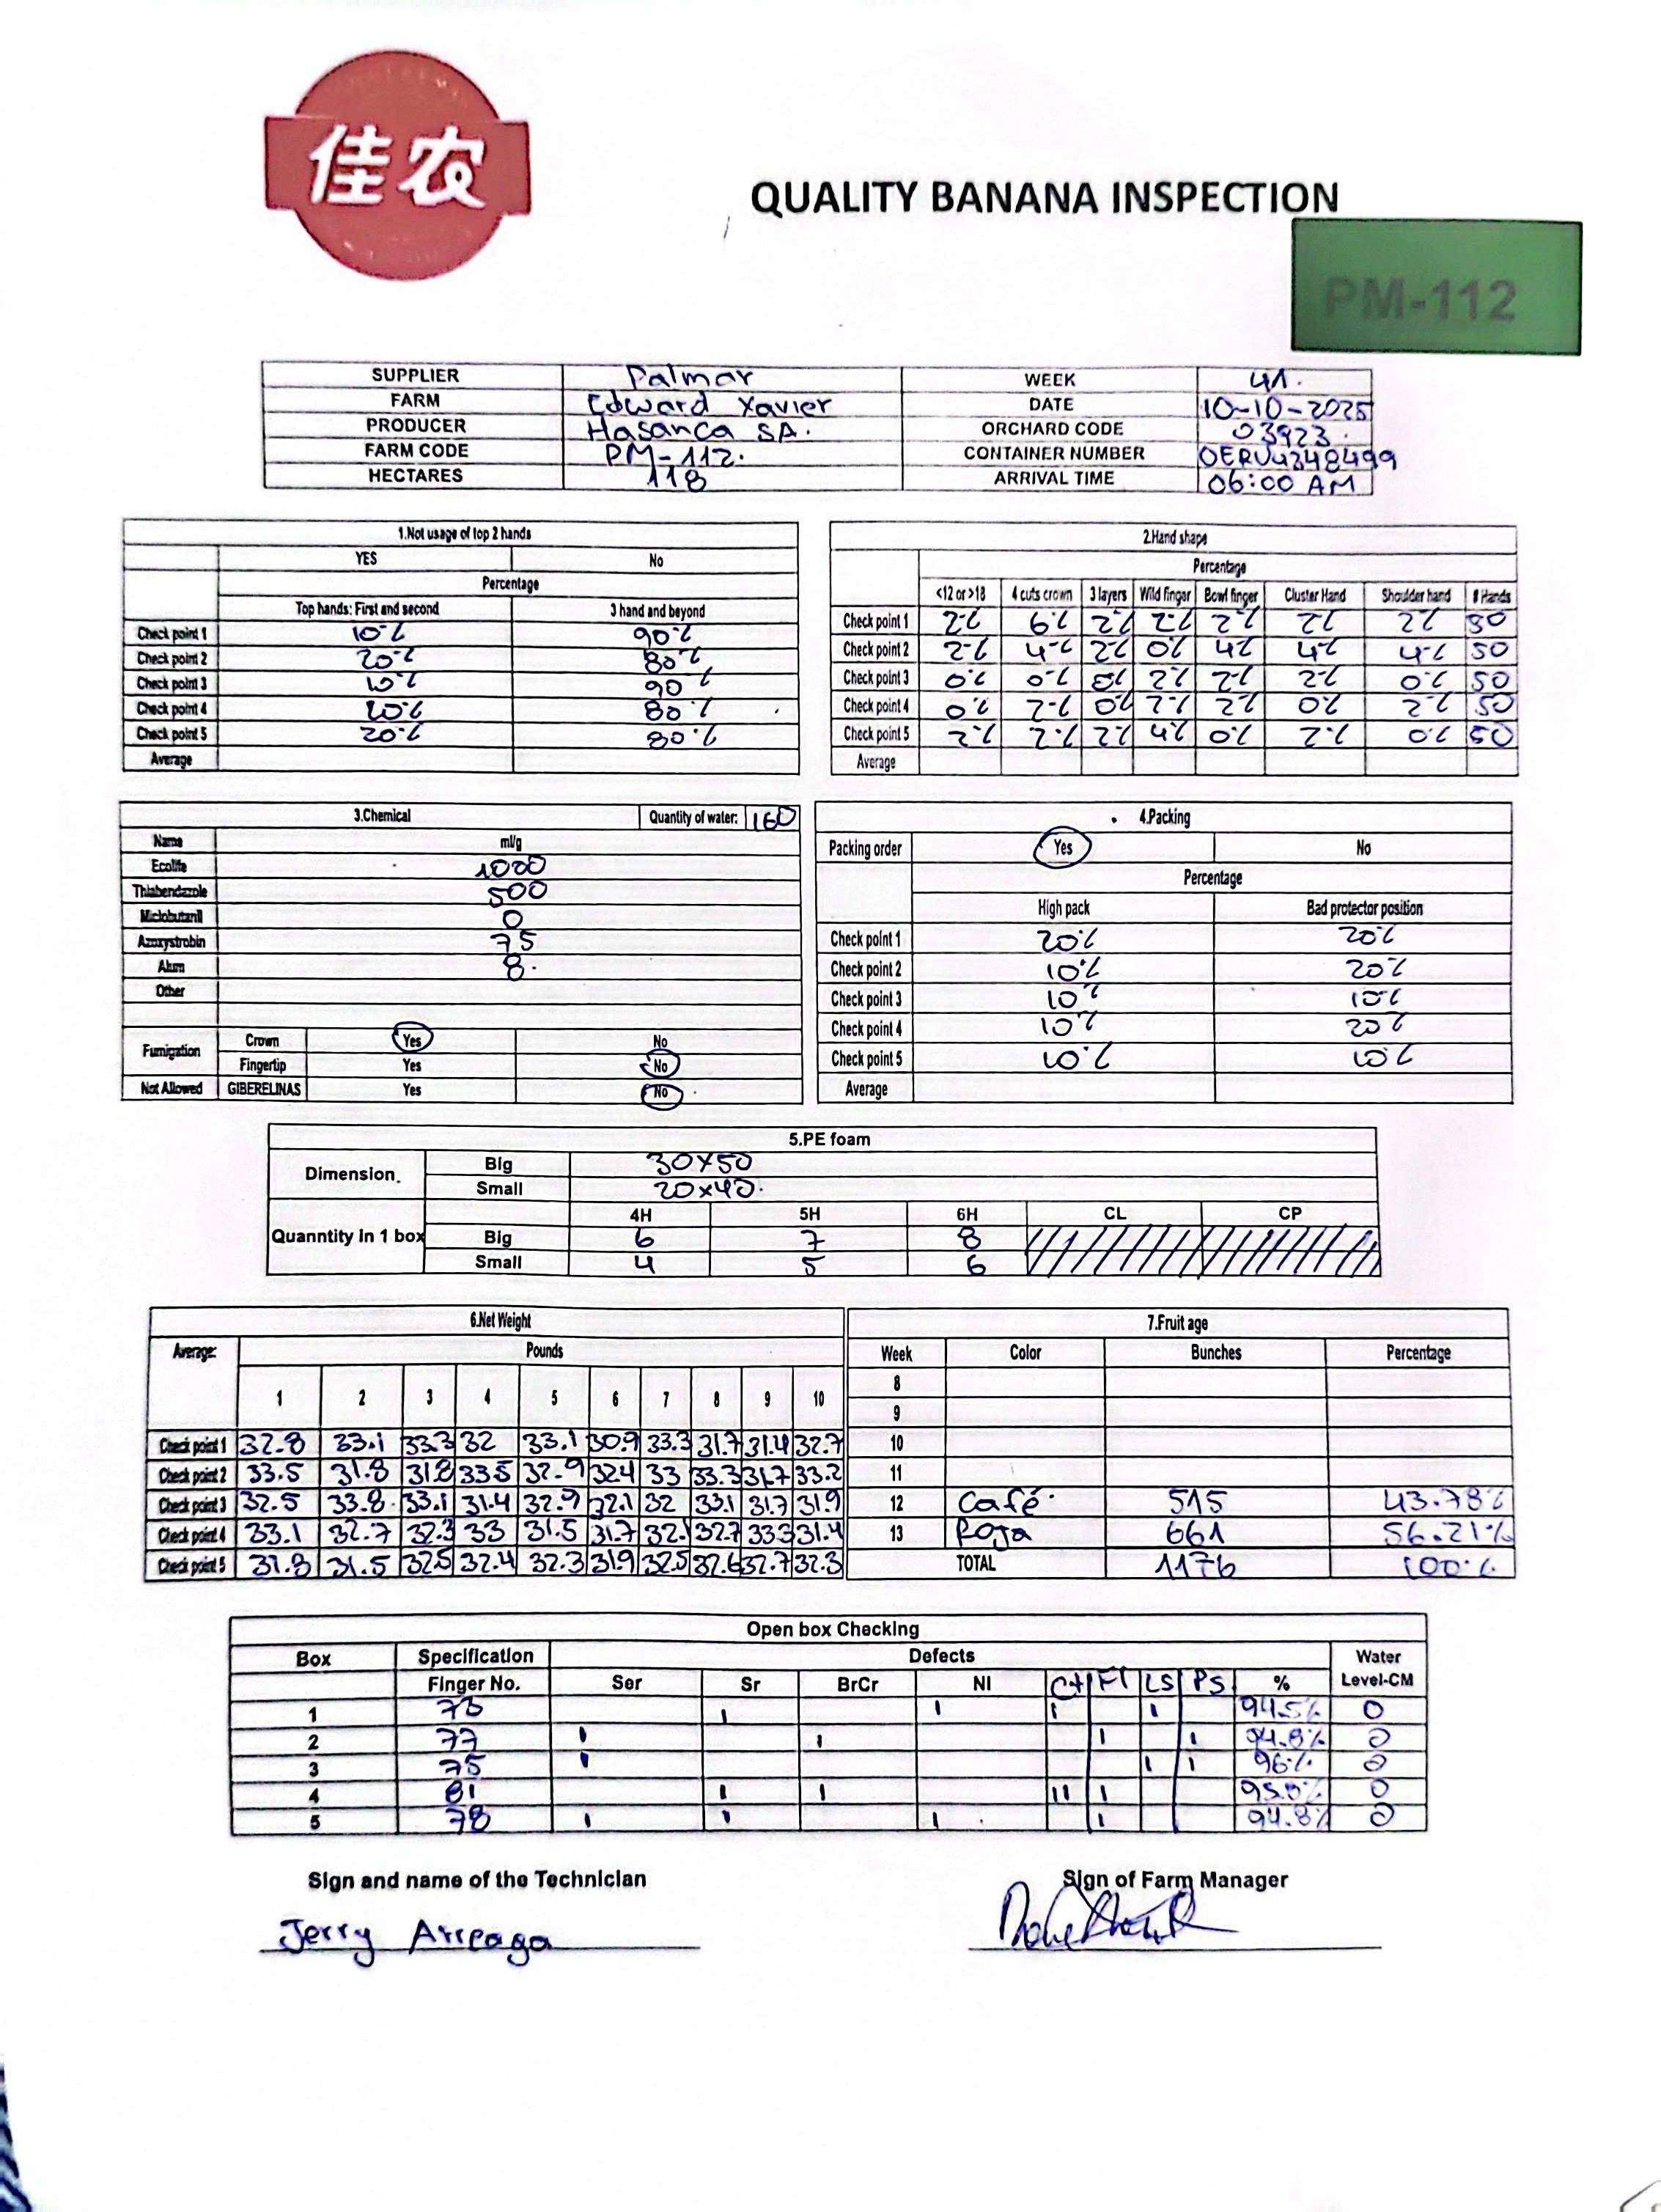 佳农
QUALITY BANANA INSPECTION
PM-112
SUPPLIER Palmar WEEK 41.
FARM Edward Xavier DATE 10-10-2025
PRODUCER Hasanca SA. ORCHARD CODE 03923.
FARM CODE PM-112. CONTAINER NUMBER OERU4348499
HECTARES 118 ARRIVAL TIME 06:00 AM
1.Not usage of top 2 hands
YES No
Percentage
Top hands: First and second 3 hand and beyond
Check point 1 10% 90%
Check point 2 20% 80%
Check point 3 10% 90%
Check point 4 20% 80%
Check point 5 20% 80%
Average
2.Hand shape
Percentage
<12 or >18 4 cuts crown 3 layers Wild fingar Bowl finger Cluster Hand Shoulder hand # Hands
Check point 1 2% 6% 2% 2% 2% 2% 2% 50
Check point 2 2% 4% 2% 0% 4% 4% 4% 50
Check point 3 0% 0% 0% 2% 2% 2% 0% 50
Check point 4 0% 2% 0% 2% 2% 0% 2% 50
Check point 5 2% 2% 2% 4% 0% 2% 0% 50
Average
3.Chemical Quantity of water: 160
Name ml/g
Ecolife 1000
Thiabendazole 500
Miclobutanil 0
Azoxystrobin 75
Alum 8.
Other
Fumigation Crown Yes No
Fingertip Yes No
Not Allowed GIBERELINAS Yes No
4.Packing
Packing order Yes No
Percentage
High pack Bad protector position
Check point 1 20% 20%
Check point 2 10% 20%
Check point 3 10% 10%
Check point 4 10% 20%
Check point 5 10% 10%
Average
5.PE foam
Dimension. Big 30x50
Small 20x40.
4H 5H 6H CL CP
Quanntity in 1 box Big 6 7 8
Small 4 5 6
6.Net Weight
Average: Pounds
1 2 3 4 5 6 7 8 9 10
Check point 1 32.8 33.1 33.3 32 33.1 30.9 33.3 31.7 31.4 32.7
Check point 2 33.5 31.8 31.8 33.5 32.9 32.4 33 33.3 31.7 33.2
Check point 3 32.5 33.8 33.1 31.4 32.9 32.1 32 33.1 31.7 31.9
Check point 4 33.1 32.7 32.3 33 31.5 31.7 32.1 32.7 33.3 31.4
Check point 5 31.8 31.5 32.5 32.4 32.3 31.9 32.5 32.6 32.7 32.3
7.Fruit age
Week Color Bunches Percentage
8
9
10
11
12 Café 515 43.78%
13 Roja 661 56.21%
TOTAL 1176 100%
Open box Checking
Box Specification Defects Water
Finger No. Ser Sr BrCr NI Ct FI LS PS % Level-CM
1 73 I I I I 94.5% 0
2 77 I I I I 94.8% 0
3 75 I I I 96% 0
4 81 I I II I 0
5 78 I I I I 94.8% 0
Sign and name of the Technician Sign of Farm Manager
Jerry Arreaga